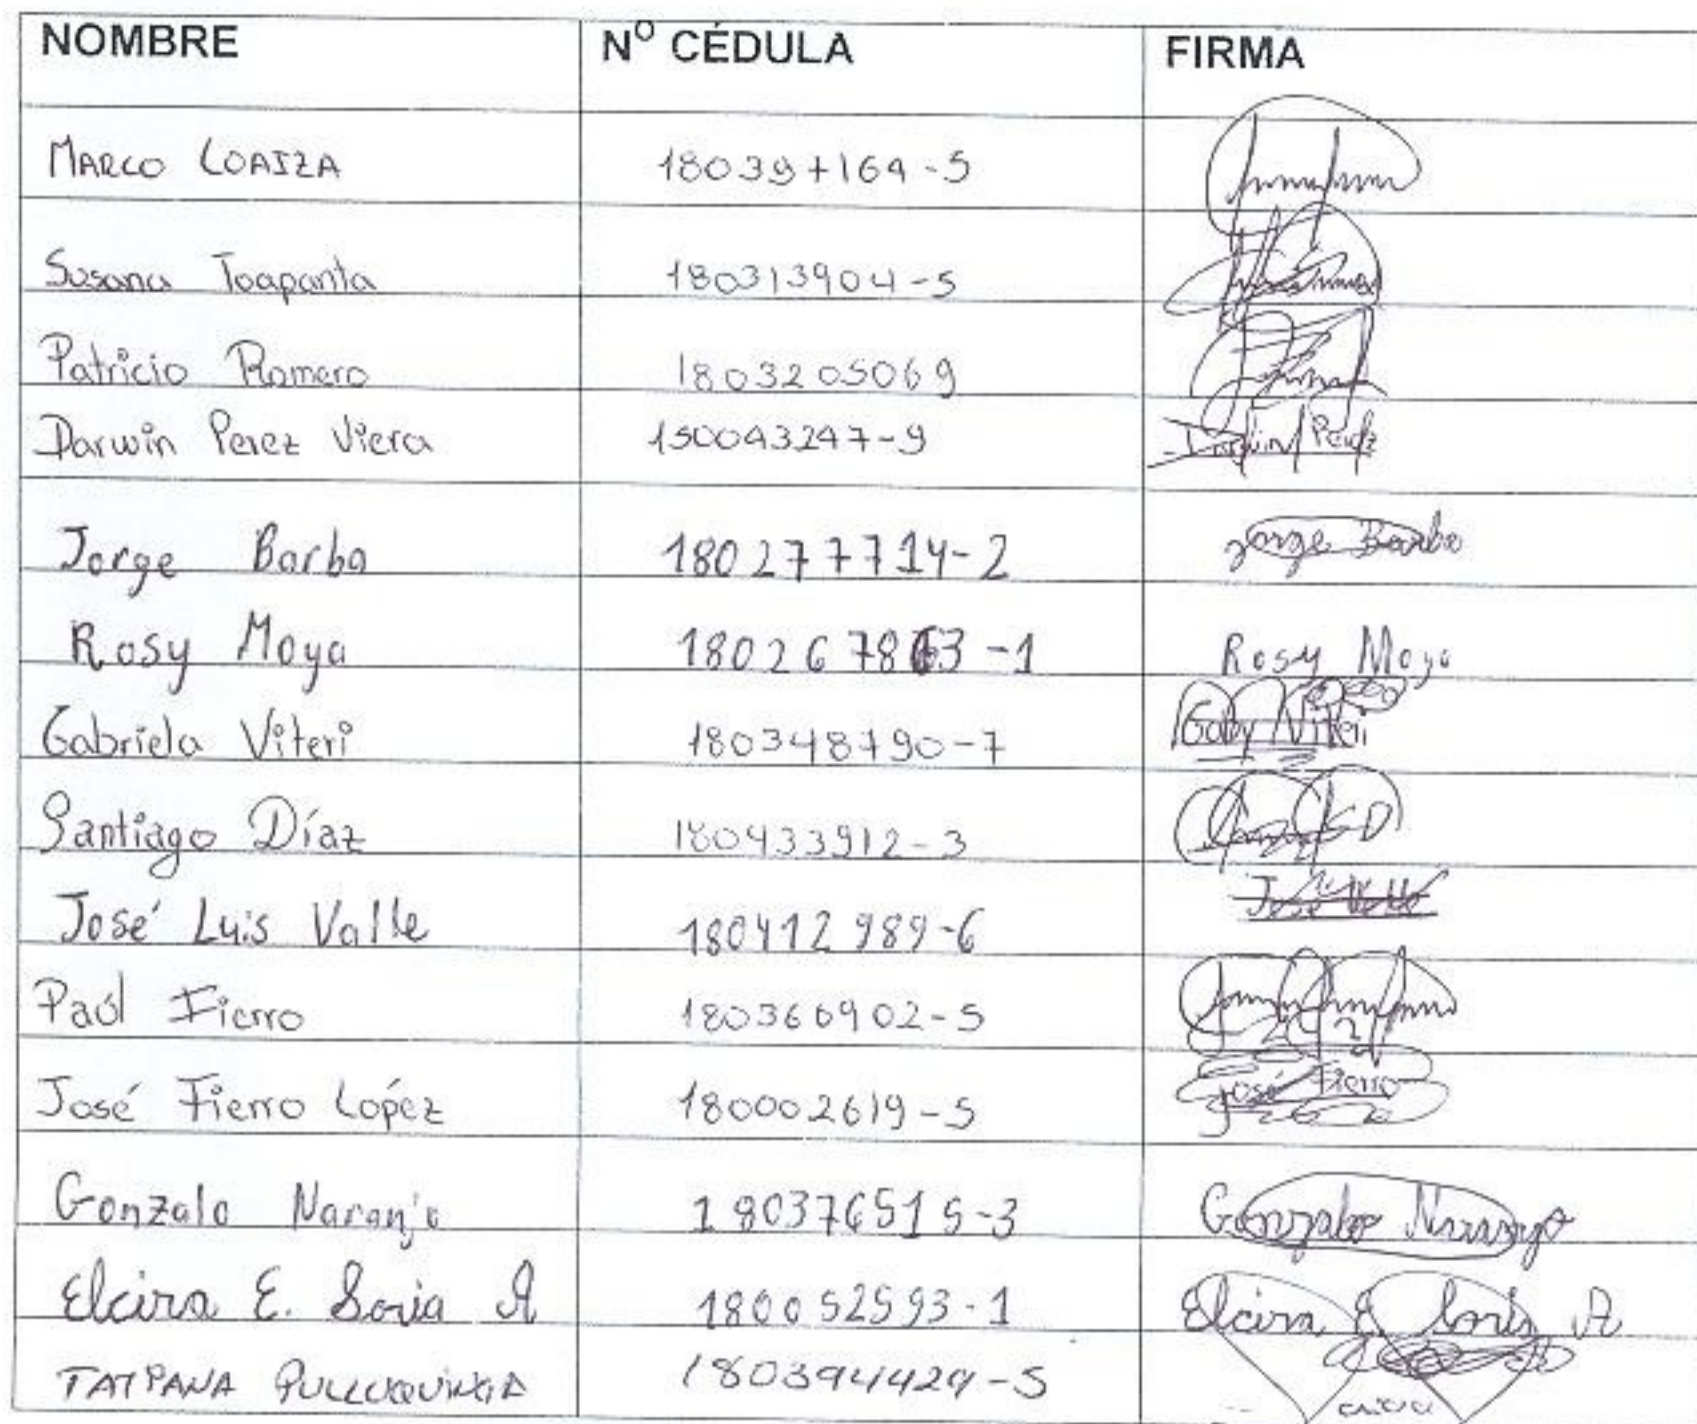 NOMBRE N° CÉDULA FIRMA
MARCO LOAIZA 18039+164-5
Susana Toapanta 180313904-5
Patricio Romero 1803205069
Darwin Perez Viera 150043247-9 Darwin Perez
Jorge Barba 180277714-2 Jorge Barba
Rosy Moya 180267863-1 Rosy Moya
Gabriela Viteri 180348790-7 Gaby Viteri
Santiago Díaz 180433912-3
José Luis Valle 180412989-6 José Valle
Paúl Fierro 180366902-5
José Fierro López 180002619-5 José Fierro
Gonzalo Naranjo 180376515-3 Gonzalo Naranjo
Elcira E. Soria A 180052593-1 Elcira E Soria A
180394429-5